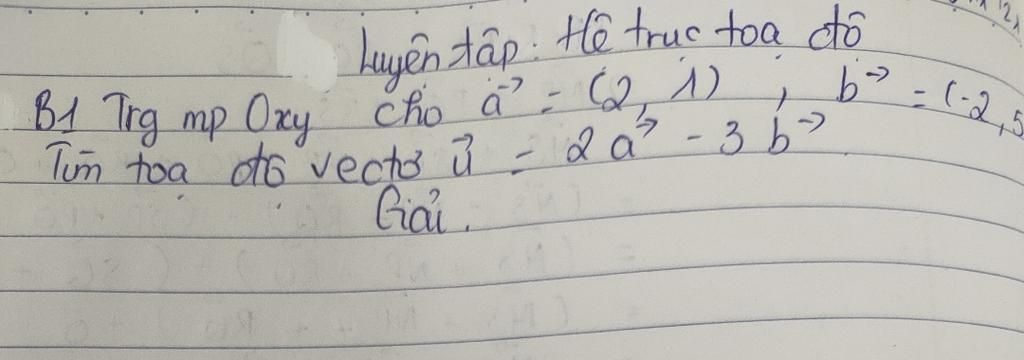 Luyện tập: Hệ trục toạ độ
B1 Trg mp Oxy cho a→ = (2, 1) , b→ = (-2, 5
Tìm toạ độ vectơ u→ = 2a→ - 3b→
Giải.